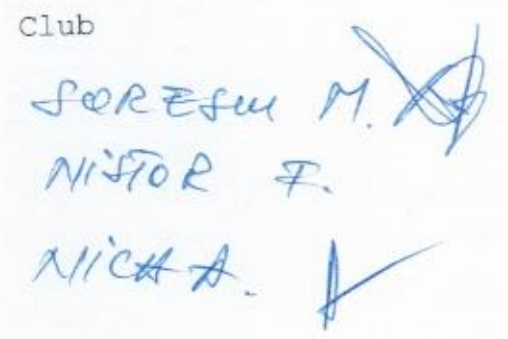 Club
SORESCU M.
NISTOR F.
NICA A.